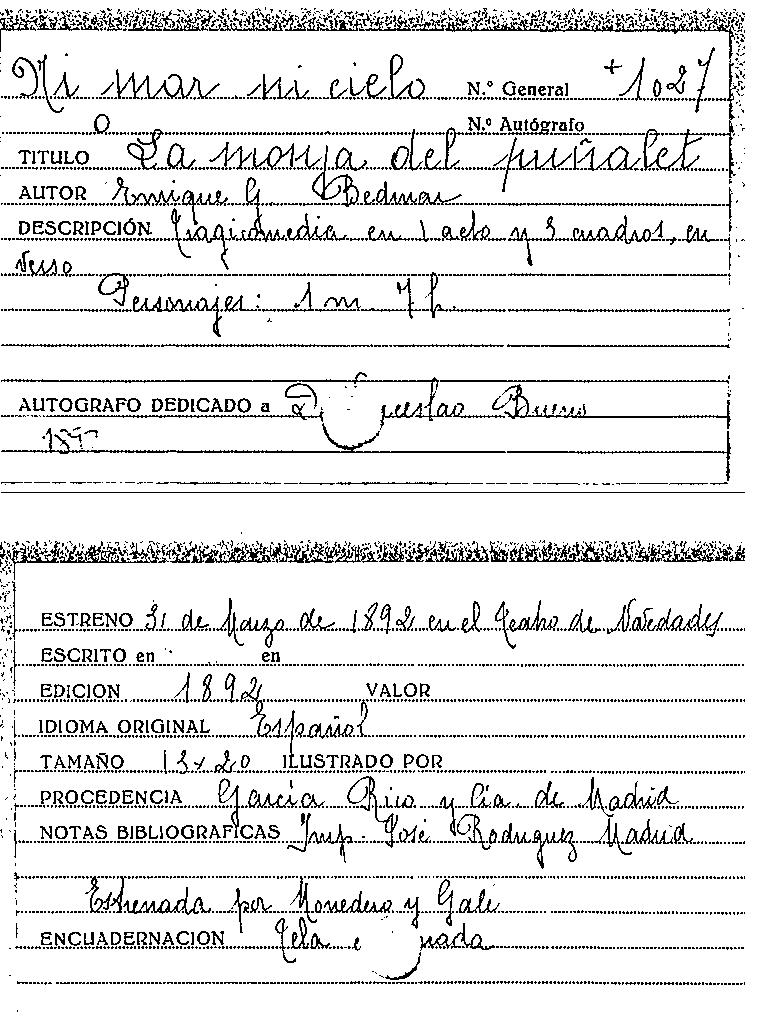 Ni mar ni cielo N.º General +1027
O N.º Autógrafo
TITULO La monja del puñalet
AUTOR Enrique G. Bedmar
DESCRIPCIÓN Tragicomedia en 1 acto y 3 cuadros, en
verso
Personajes: 1 m. 7 h.
AUTOGRAFO DEDICADO a Bueno
ESTRENO 31 de Marzo de 1892 en el Teatro de Novedades
ESCRITO en en
EDICION 1892 VALOR
IDIOMA ORIGINAL Español
TAMAÑO 13x20 ILUSTRADO POR
PROCEDENCIA García Rico y Cía. de Madrid
NOTAS BIBLIOGRAFICAS Imp. José Rodriguez Madrid
Estrenada por Monedero y Galé
ENCUADERNACION Tela